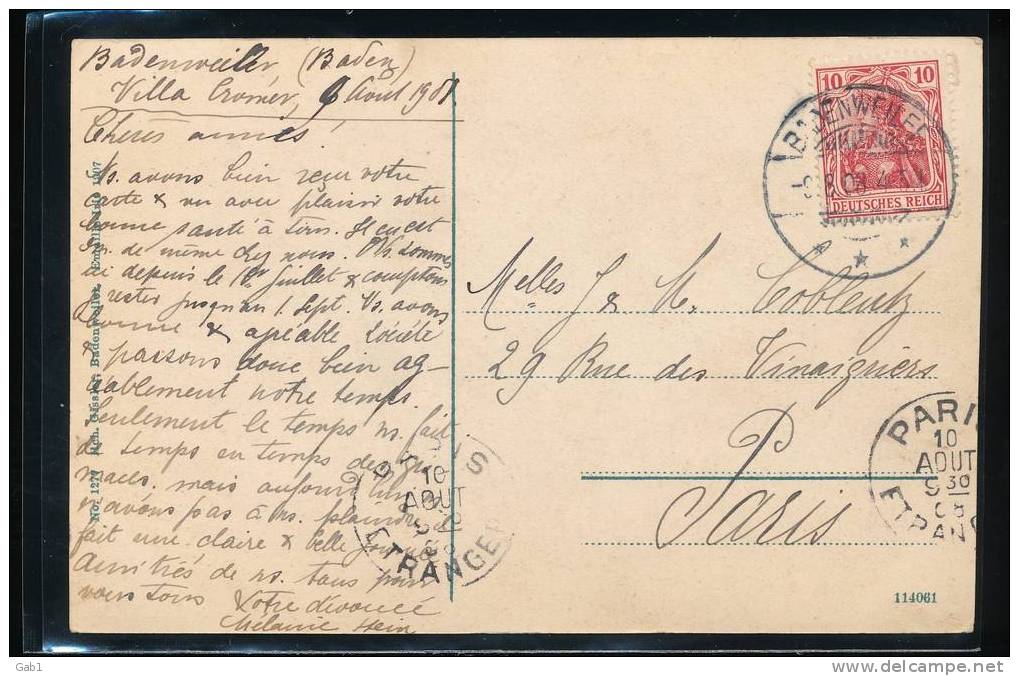 Badenweiler (Baden)
Villa Cromer, 9 Août 1908
Chères amies!
Ns. avons bien reçu votre
carte & vu avec plaisir votre
bonne santé à tous. Il en est
de même chez nous. Ns. sommes
ici depuis le 16 juillet & comptons
y rester jusqu'au 1. Sept. Ns. avons
bonne & agréable société
& passons donc bien ag-
réablement notre temps.
Seulement le temps ns. fait
de temps en temps des gri
maces, mais aujourd'hui
n'avons pas à ns. plaindre, il
fait une claire & belle journée
Amitiés de ns. tous pour
vous tous
Votre dévouée
Mélanie Stein
No. 1277 Rch. Gissler, Badenweiler, 1907
10 10
DEUTSCHES REICH
BADENWEILER
Melles J & M. Coblentz
29 Rue des Vinaigriers
P
Paris
PARIS
10
AOUT
ETRANGER
PARI
10
AOUT
9 30
08
ETRAN
114061
Gab1
www.delcampe.net